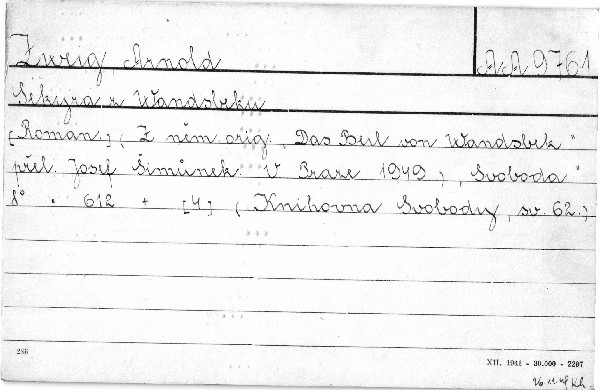 Zweig Arnold
AA 9761
Sekyra z Wandsbeku
[Roman.] (Z něm. orig. „Das Beil von Wandsbek"
přel. Josef Šimůnek. V Praze 1949), „Svoboda"
8° . 612 + [4] (Knihovna Svobody, sv. 62.)
286
XII. 1941 - 30.000 - 2207